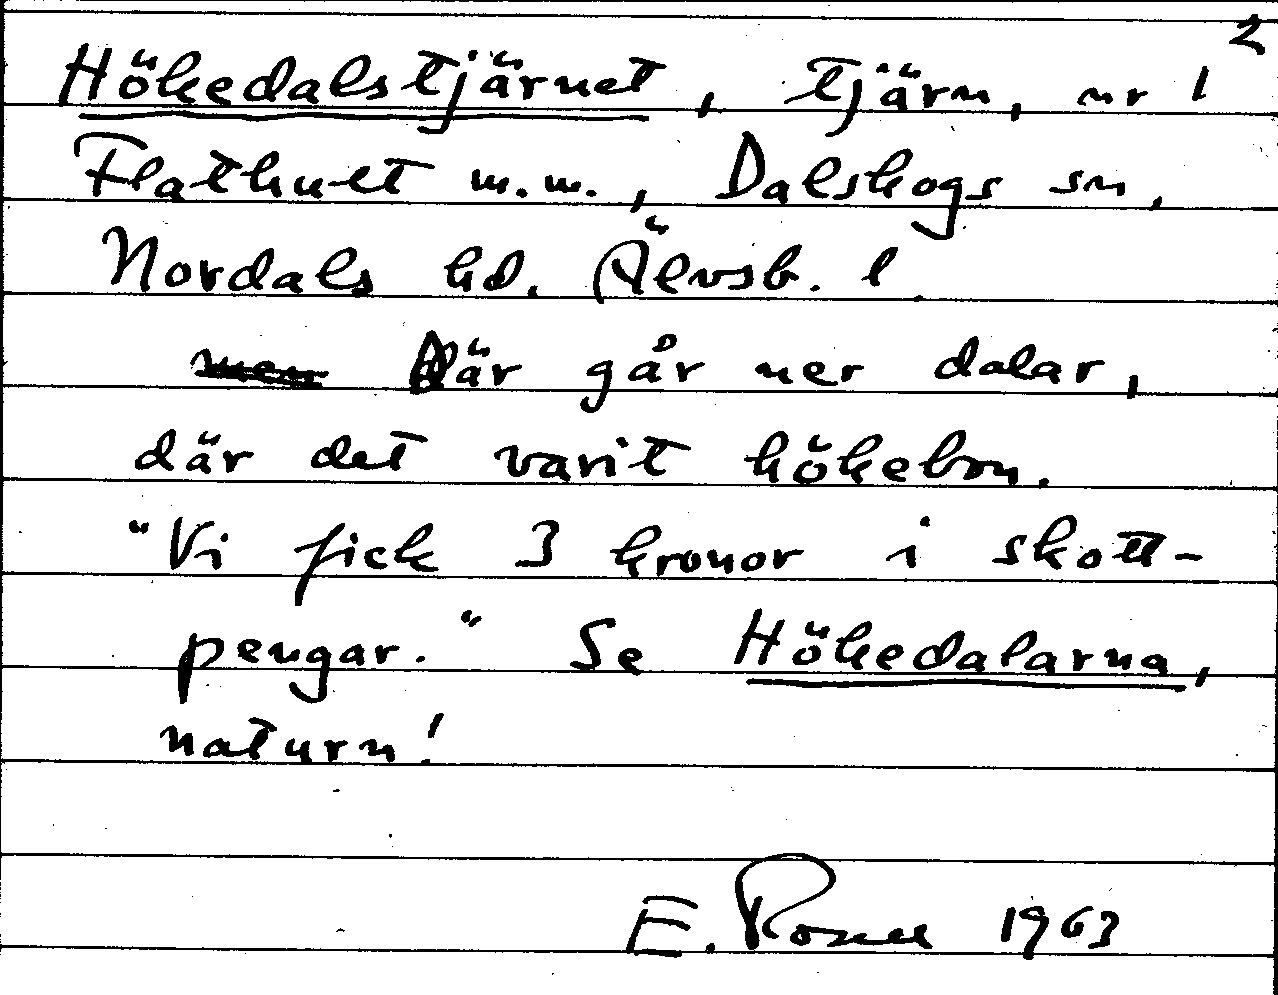 2
Hökedalstjärnet, tjärn, nr 1
Flathult m.m., Dalskogs sn,
Nordals hd. Älvsb. l.
Där går ner dalar,
där det varit hökebon.
"Vi fick 3 kronor i skott-
pengar." Se Hökedalarna,
naturn!
E. 1963